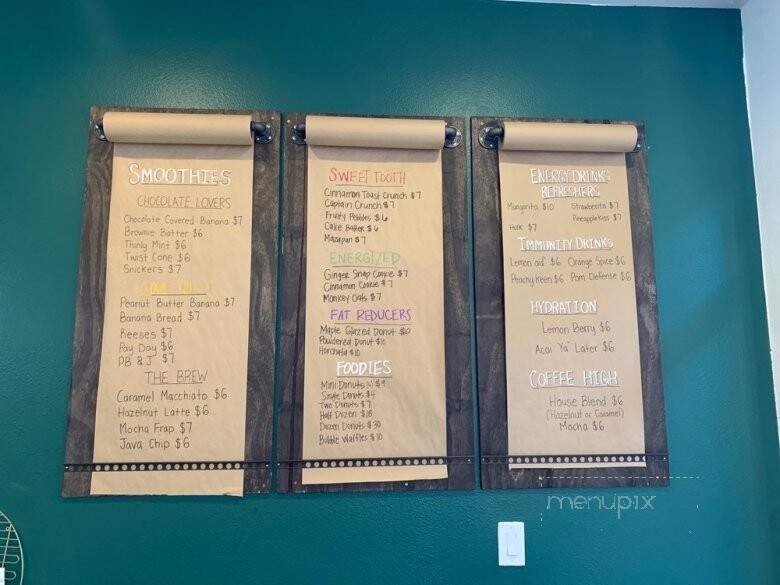 SMOOTHIES
CHOCOLATE LOVERS
Chocolate Covered Banana $7
Brownie Batter $6
Thinly Mint $6
Twist Cone $6
Snickers $7
Peanut Butter Banana $7
Banana Bread $7
Reeses $7
Pay Day $6
PB & J $7
THE BREW
Caramel Macchiato $6
Hazelnut Latte $6
Mocha Frap $7
Java Chip $6
SWEET TOOTH
Cinnamon Toast Crunch $7
Captain Crunch $7
Fruity Pebbles $6
Cake Batter $6
Mazapan $7
ENERGIZED
Ginger Snap Cookie $7
Cinnamon Cookie $7
Monkey Oats $7
FAT REDUCERS
Maple Glazed Donut $10
Powdered Donut $10
Horchata $10
FOODIES
Mini Donuts $9
Single Donuts $4
Two Donuts $7
Half Dozen $18
Dozen Donuts $30
Bubble Waffles $10
ENERGY DRINKS
REFRESHERS
Mangorita $10 Strawberita $7
Pineapple Kiss $7
Hulk $7
IMMUNITY DRINKS
Lemon'aid $6 Orange Spice $6
Peachy Keen $6 Pom Defense $6
HYDRATION
Lemon Berry $6
Acai 'Ya' Later $6
COFFEE HIGH
House Blend $6
(Hazelnut or Caramel)
Mocha $6
menupix